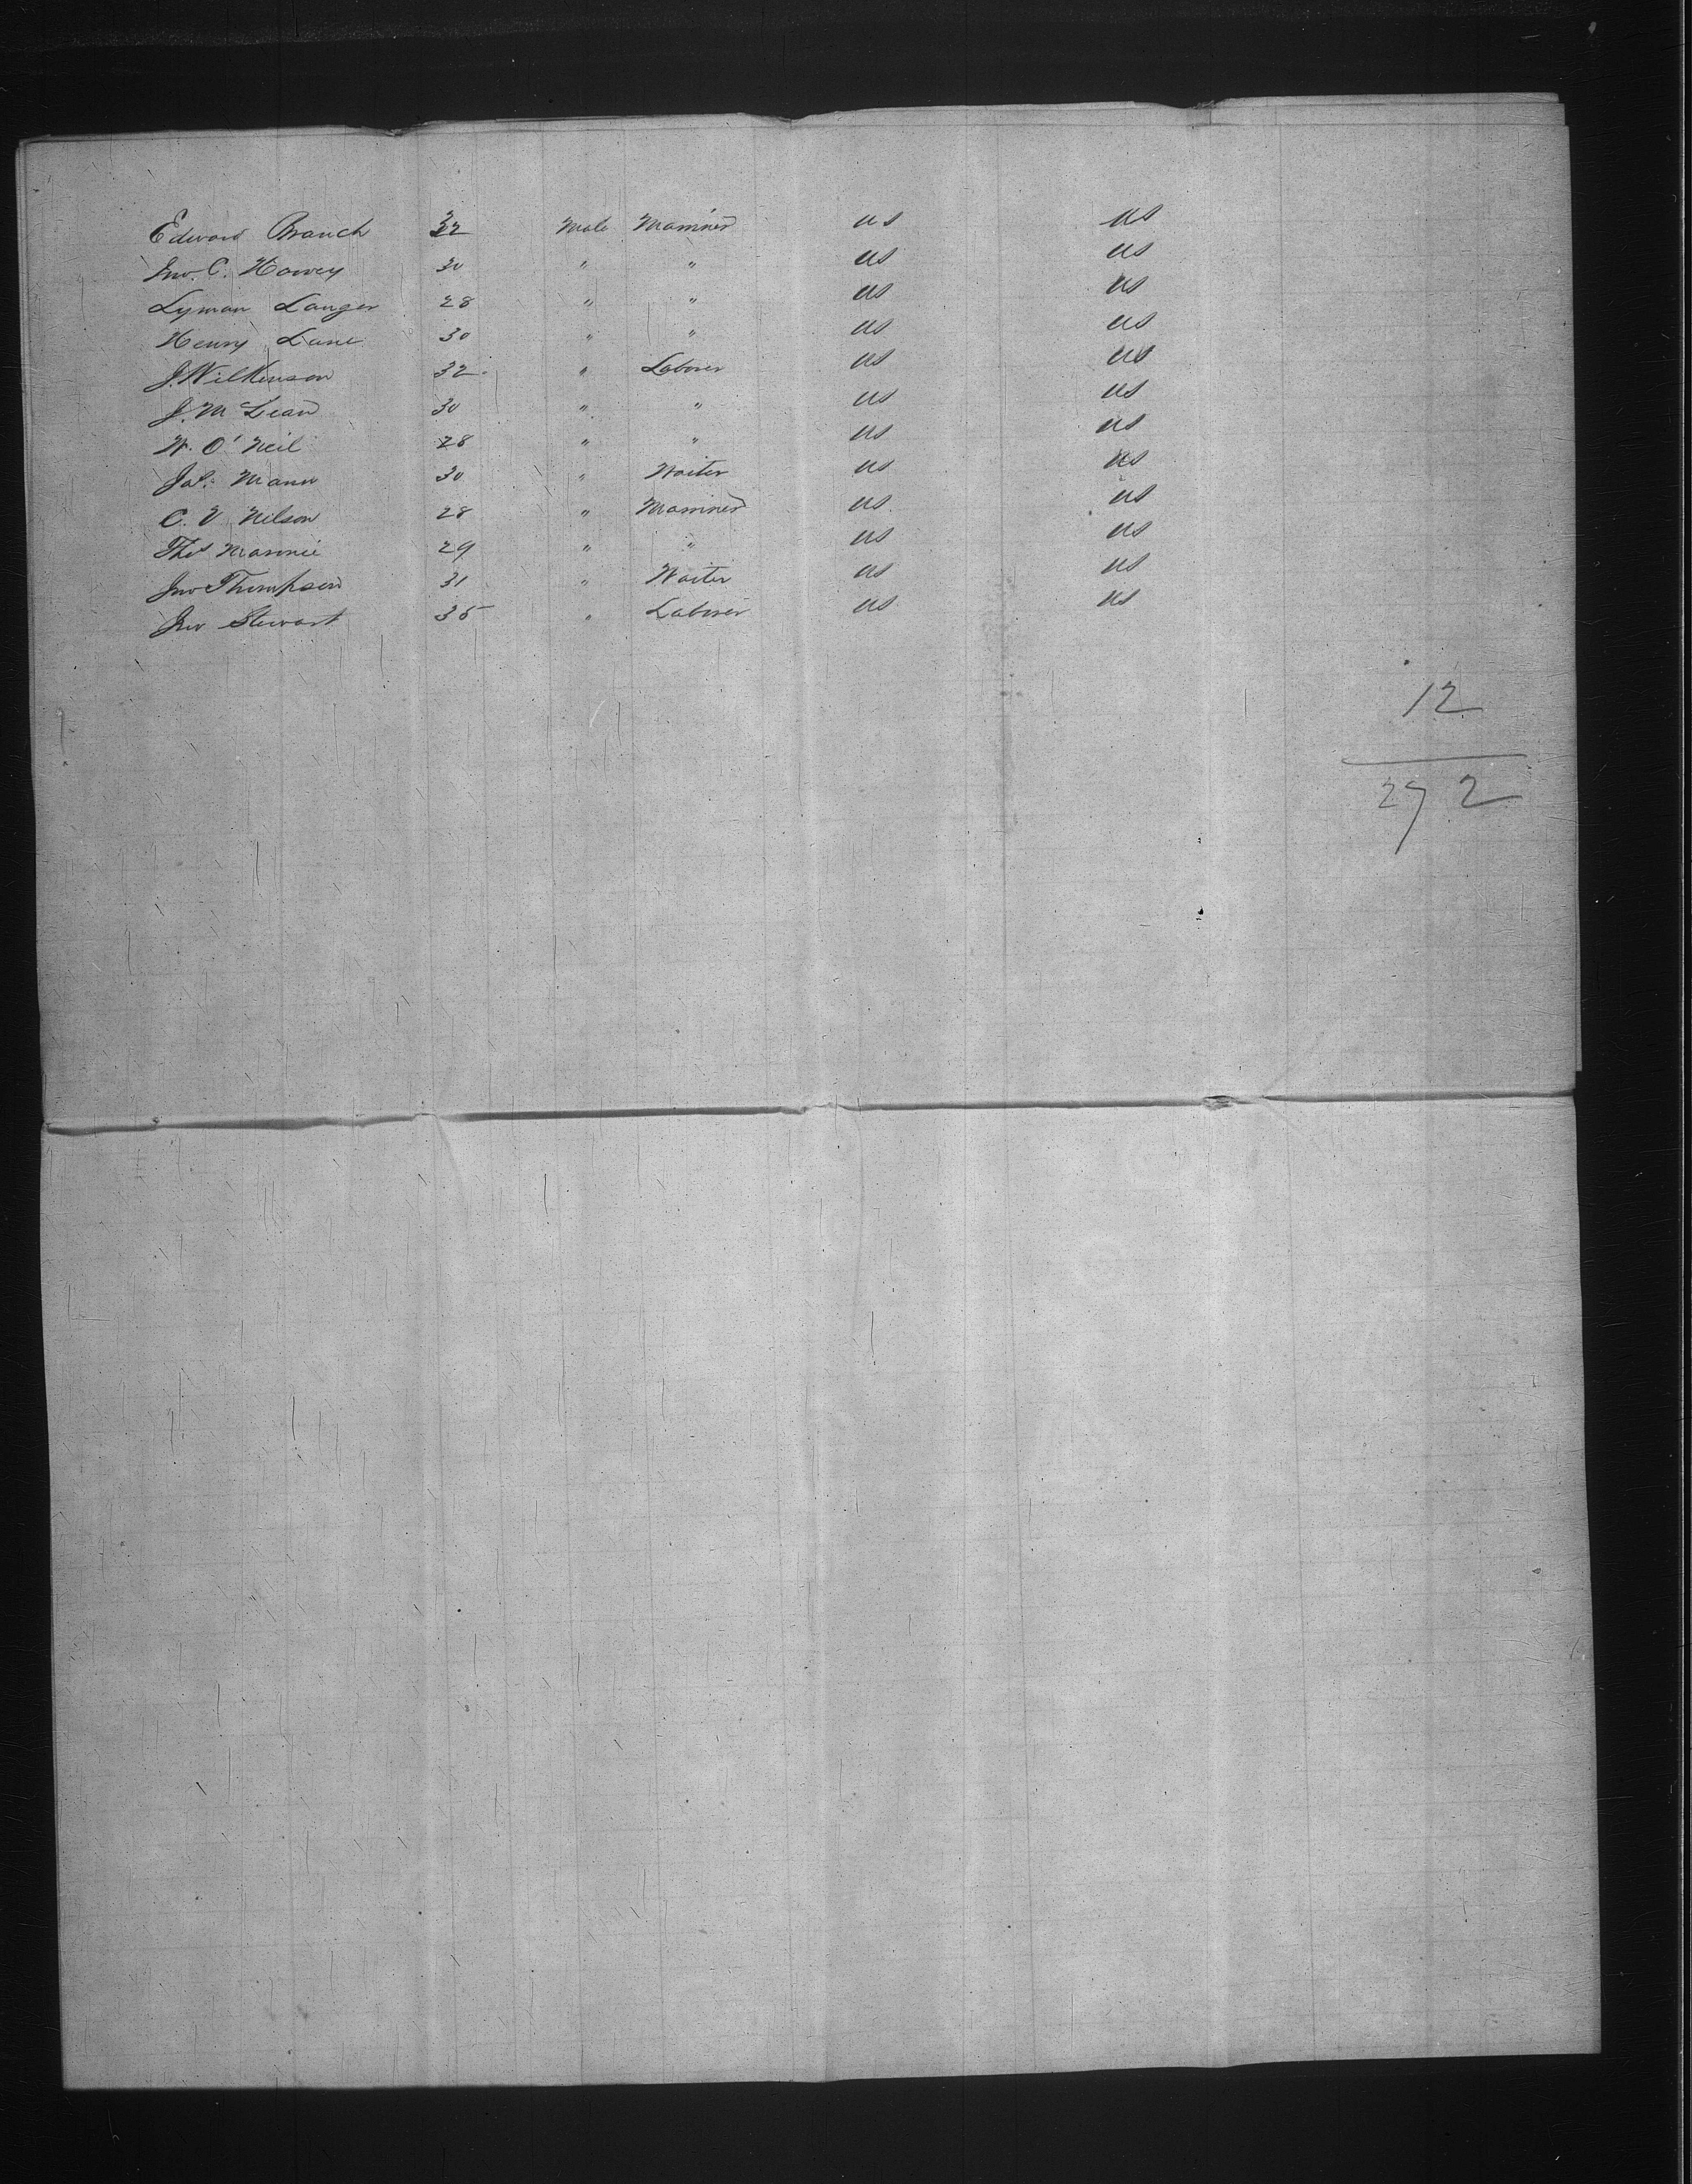 Edward Branch 32 Male Mariner US US
Jno. C. Howey 30 " " US US
Lyman Langer 28 " " US US
Henry Lane 30 " " US US
J. Wilkinson 32 " Laborer US US
J. McLean 30 " " US US
W. O'Neil 28 " " US US
Jas. Mann 30 " Waiter US US
C. V Nilson 28 " Mariner US US
Thos 29 " " US US
Jno Thompson 31 " Waiter US US
Jno Stewart 35 " Laborer US US
12
272